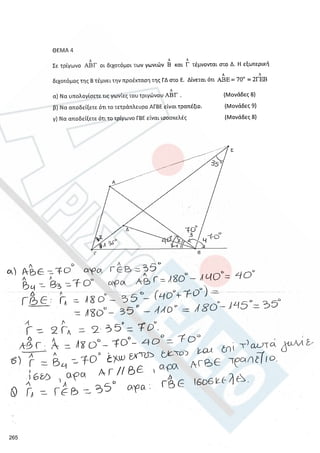 ΘΕΜΑ 4
Σε τρίγωνο ΑΒΓ οι διχοτόμοι των γωνιών Β̂ και Γ̂ τέμνονται στο Δ. Η εξωτερική
διχοτόμος της Β τέμνει την προέκταση της ΓΔ στο Ε. Δίνεται ότι ΑΒ̂Ε = 70° = 2ΓΕ̂Β
α) Να υπολογίσετε τις γωνίες του τριγώνου ΑΒΓ. (Μονάδες 8)
β) Να αποδείξετε ότι το τετράπλευρο ΑΓΒΕ είναι τραπέζιο. (Μονάδες 9)
γ) Να αποδείξετε ότι το τρίγωνο ΓΒΕ είναι ισοσκελές (Μονάδες 8)
Ε
35°
Α
Δ
70°
40°
70°
Γ
Β
α) ΑΒ̂Ε = 70° αρα ΓΕ̂Β = 35°
Β̂4 = Β̂3 = 70° αρα ΑΒ̂Γ = 180° - 140° = 40°
ΓΒΕ: Γ̂1 = 180° - 35° - (40° + 70°) =
= 180° - 35° - 110° = 180° - 145° = 35°
Γ̂ = 2Γ̂1 = 2·35° = 70°.
ΑΒΓ: Α̂ = 180° - 70° - 40° = 70°
β) Γ̂ = Β̂4 = 70° εχω εντος εκτος και επι τ'αυτα γωνιες
ισες, αρα ΑΓ//ΒΕ, αρα ΑΓΒΕ τραπεζιο.
γ) Γ̂1 = ΓΕ̂Β = 35° αρα: ΓΒΕ ισοσκελές.
265